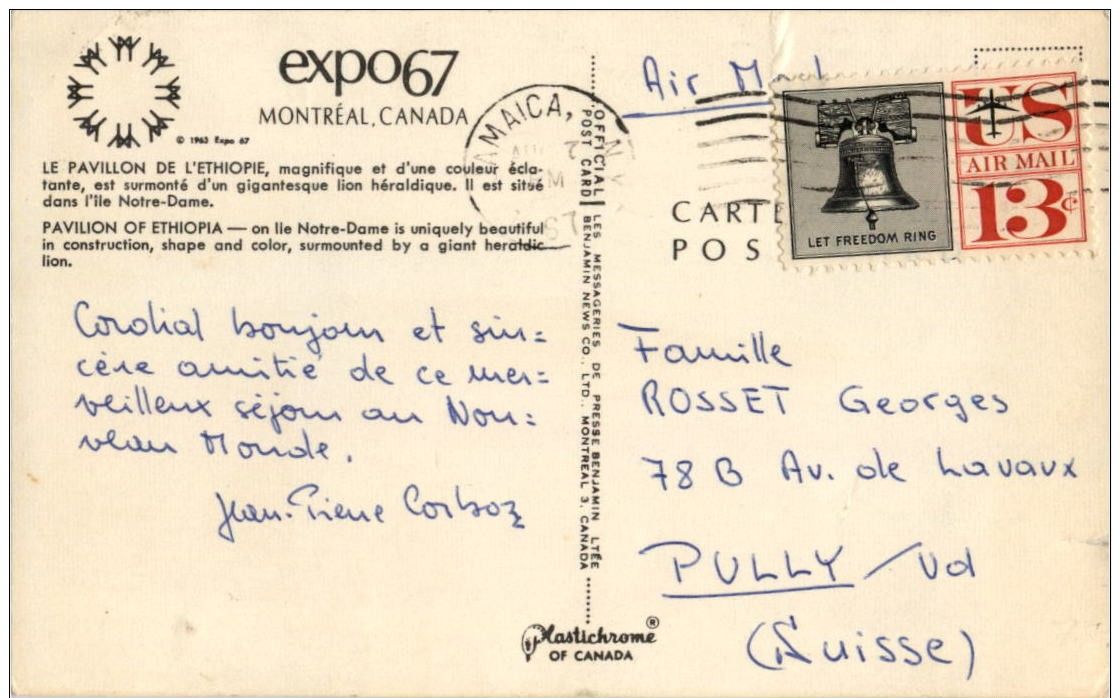 expo67
MONTRÉAL, CANADA
© 1963 Expo 67
LE PAVILLON DE L'ETHIOPIE, magnifique et d'une couleur écla-
tante, est surmonté d'un gigantesque lion héraldique. Il est situé
dans l'île Notre-Dame.
PAVILION OF ETHIOPIA — on Ile Notre-Dame is uniquely beautiful
in construction, shape and color, surmounted by a giant heraldic
lion.
Cordial bonjour et sin=
cère amitié de ce mer=
veilleux séjour au Nou=
veau Monde.
Jean-Pierre Corboz
OFFICIAL
POST CARD
LES MESSAGERIES DE PRESSE BENJAMIN LTÉE
BENJAMIN NEWS CO., LTD., MONTREAL 3, CANADA
Plastichrome®
OF CANADA
AMAICA, N
Air Mail
US
AIR MAIL
13c
LET FREEDOM RING
CARTE
POS
Famille
ROSSET Georges
78 B Av. de Lavaux
PULLY / Vd
(Suisse)